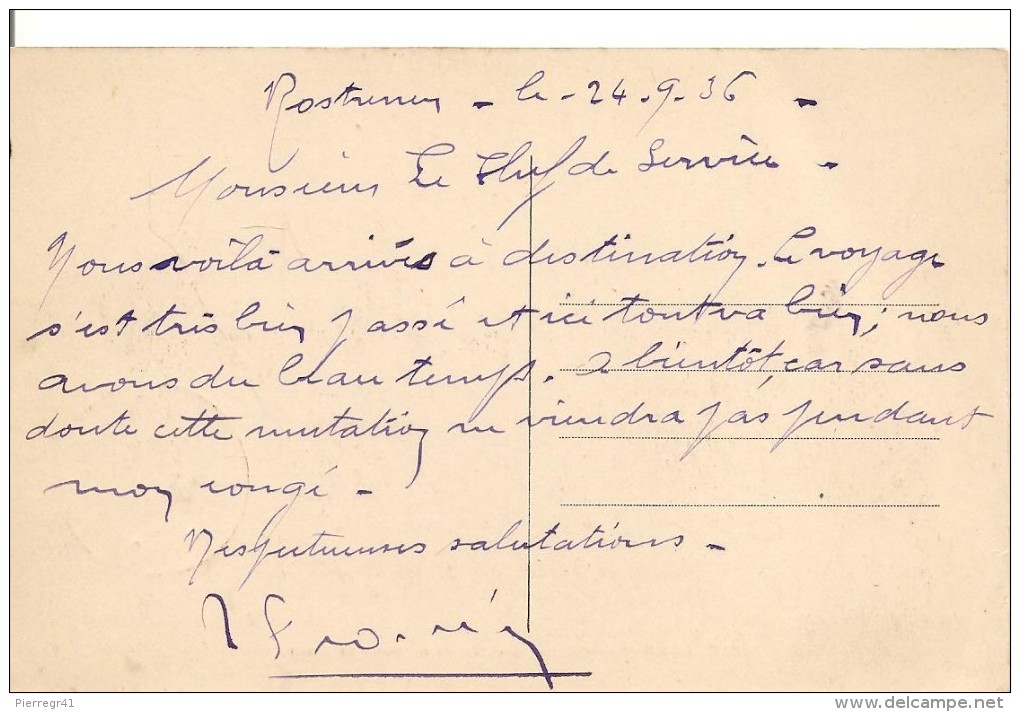 Rostrenen - le - 24.9.36 -
Monsieur Le Chef de Service -
Nous voilà arrivés à destination. Le voyage
s'est très bien passé et ici tout va bien; nous
avons du beau temps. A bientôt, car sans
doute cette mutation ne viendra pas pendant
mon congé -
Respectueuses salutations -
Pierregr41
www.delcampe.net